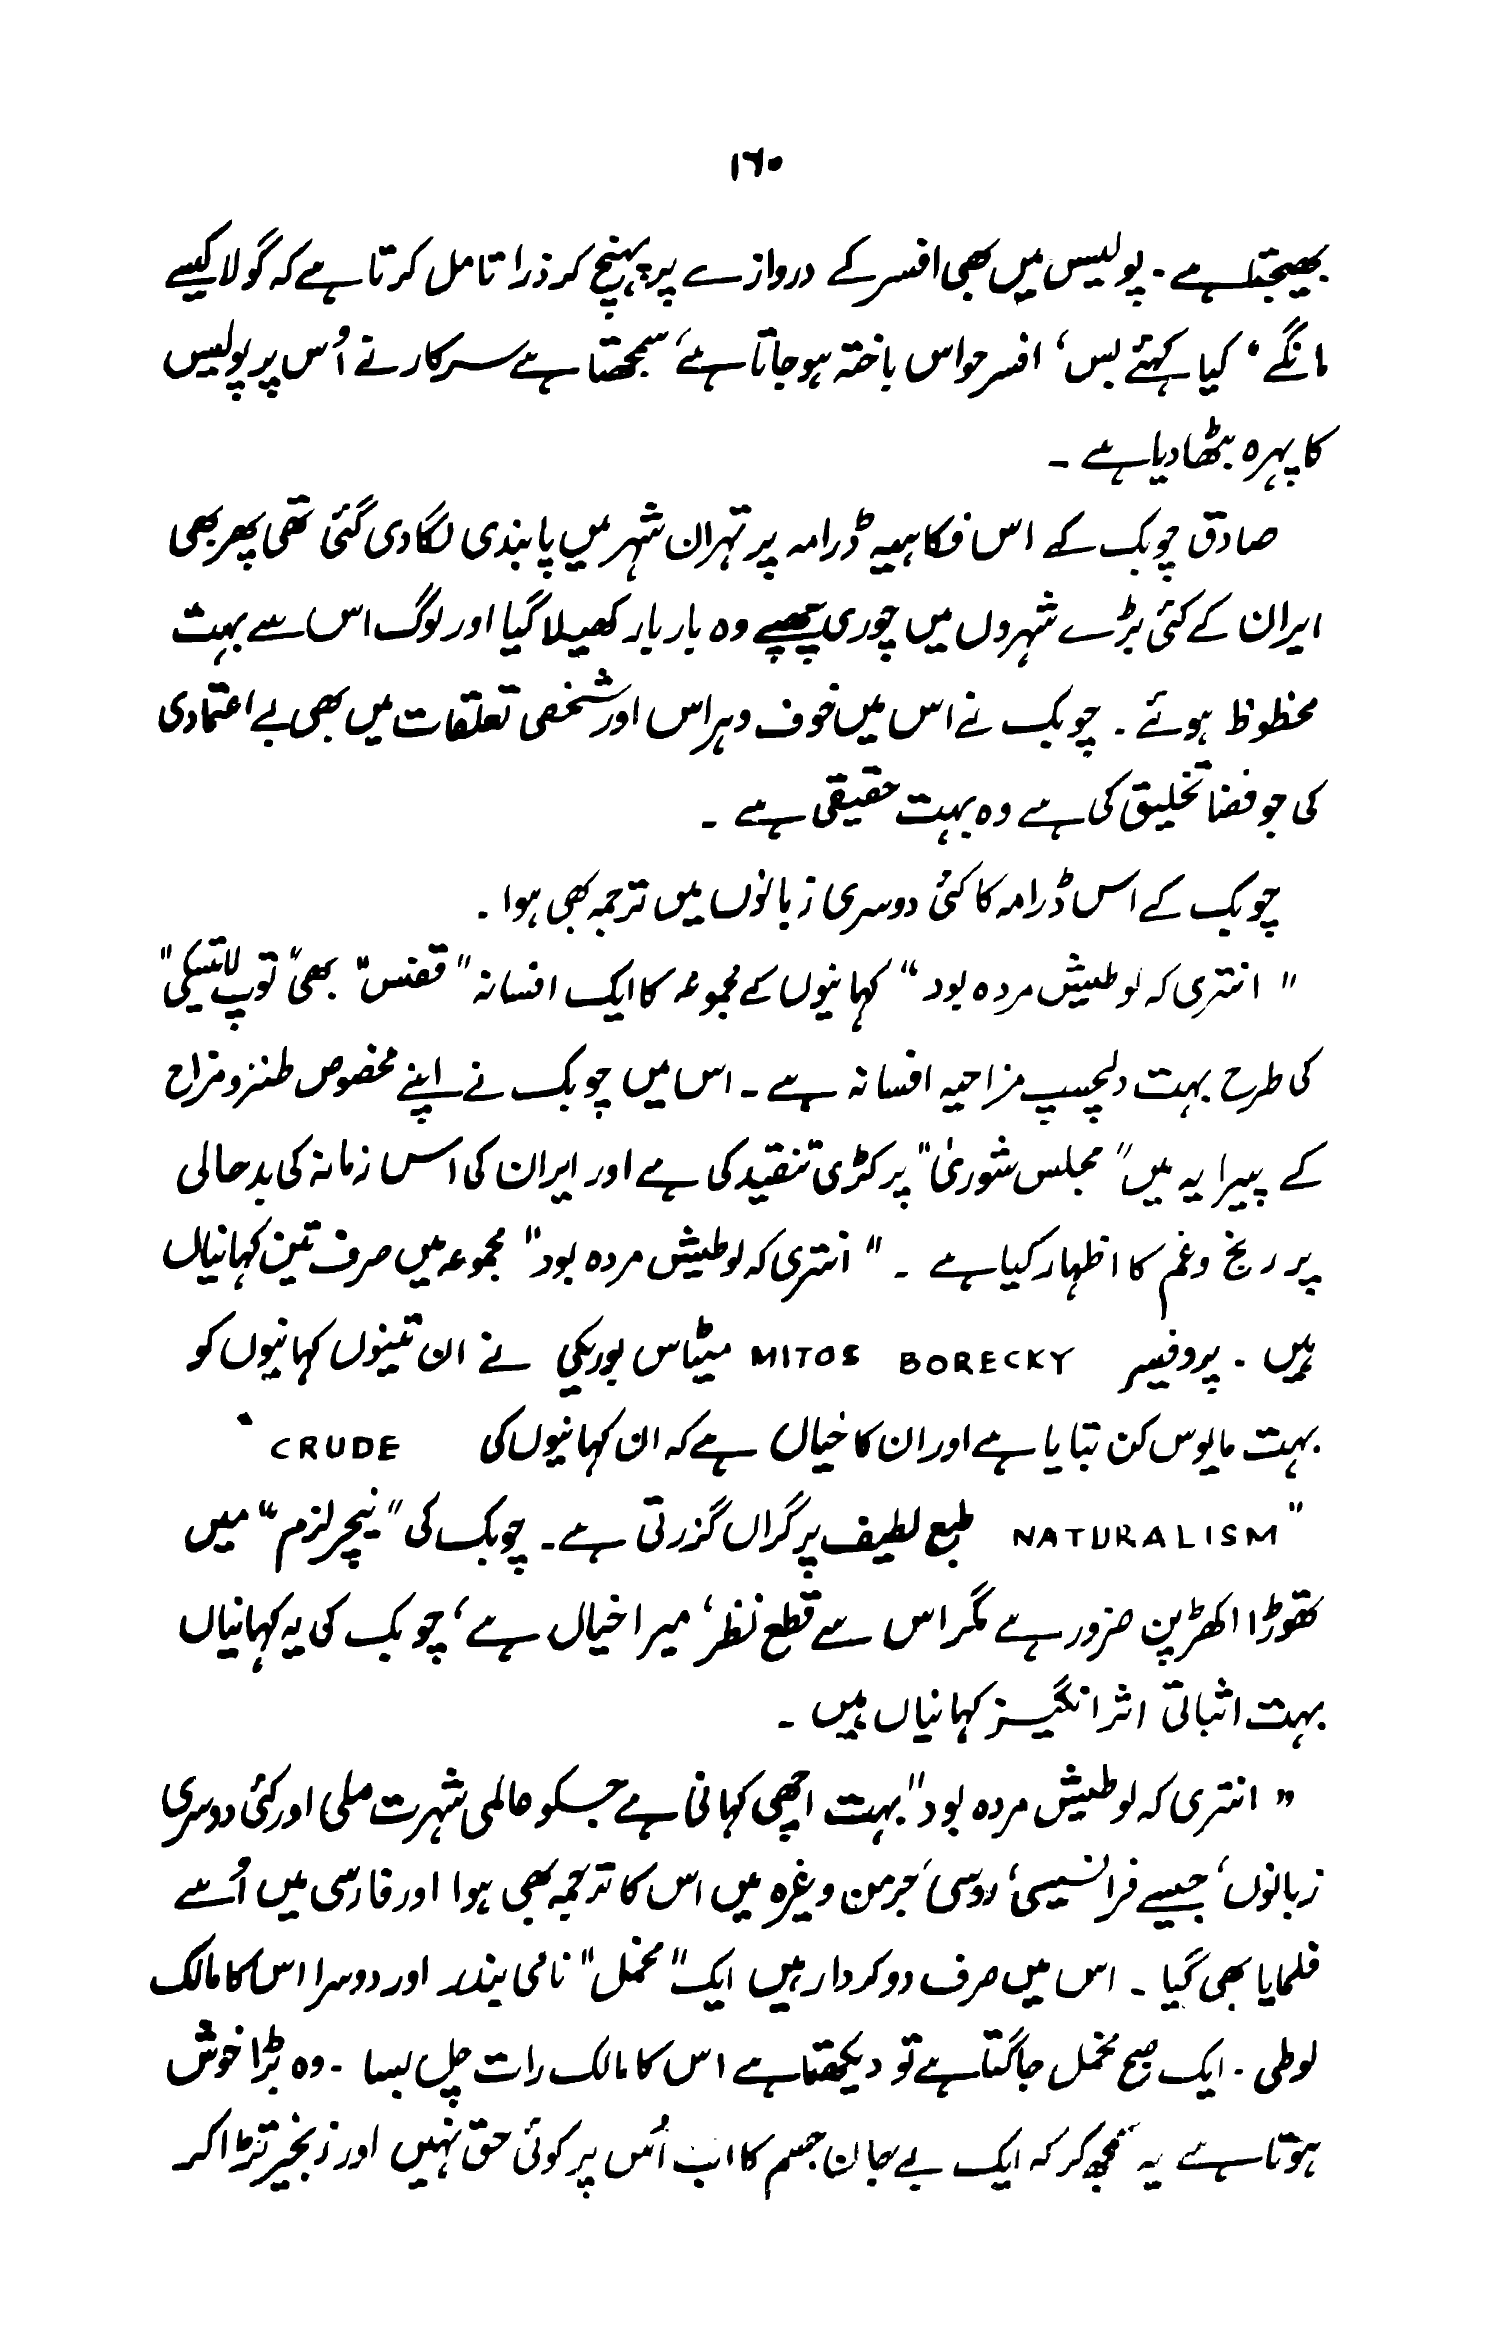 ۱۶۰
بھیجتا ہے ۔ پولیس مین بھی افسر کے دروازے پر پہنچ کر ذرا تامل کرتا ہے کہ گولا کیسے
مانگے ‘ کیا کہئے بس ‘ افسر حواس باختہ ہو جاتا ہے ‘ سمجھتا ہے سرکار نے اُس پر پولیس
کا پہرہ بٹھا دیا ہے ۔
صادق چوبک کے اس فکاہیہ ڈرامہ پر تہران شہر میں پابندی لگادی گئی تھی پھر بھی
ایران کے کئی بڑے شہروں میں چوری چھپے وہ بار بار کھیلا گیا اور لوگ اس سے بہت
محظوظ ہوئے ۔ چوبک نے اس میں خوف و ہراس اور شخصی تعلقات میں بھی بے اعتمادی
کی جو فضا تخلیق کی ہے وہ بہت حقیقی ہے ۔
چوبک کے اس ڈرامہ کا کئی دوسری زبانوں میں ترجمہ بھی ہوا ۔
" انتری کہ لوطیش مردہ بود " کہانیوں کے مجموعہ کا ایک افسانہ " قفس " بھی " توپ لاستیکی "
کی طرح بہت دلچسپ مزاحیہ افسانہ ہے ۔ اس میں چوبک نے اپنے مخصوص طنز و مزاح
کے پیرایہ میں " مجلس شوریٰ " پر کڑی تنقید کی ہے اور ایران کی اس زمانہ کی بدحالی
پر رنج و غم کا اظہار کیا ہے ۔ " انتری کہ لوطیش مردہ بود " مجموعہ میں صرف تین کہانیاں
ہیں ۔ پروفیسر MITOS BORECKY میٹاس بوریکی نے ان تینوں کہانیوں کو
بہت مایوس کن بتایا ہے اور ان کا خیال ہے کہ ان کہانیوں کی CRUDE "
NATURALISM " طبع لطیف پر گراں گزرتی ہے ۔ چوبک کی " نیچرلزم " میں
تھوڑا اکھڑپن ضرور ہے مگر اس سے قطع نظر ‘ میرا خیال ہے ‘ چوبک کی یہ کہانیاں
بہت اثباتی اثر انگیز کہانیاں ہیں ۔
" انتری کہ لوطیش مردہ بود " بہت اچھی کہانی ہے جسکو عالمی شہرت ملی اور کئی دوسری
زبانوں ‘ جیسے فرانسیسی ‘ روسی ‘ جرمن وغیرہ میں اس کا ترجمہ بھی ہوا اور فارسی میں اُسے
فلمایا بھی گیا ۔ اس میں صرف دو کردار ہیں ایک " مخمل " نامی بندر اور دوسرا اس کا مالک
لوطی ۔ ایک صبح مخمل جاگتا ہے تو دیکھتا ہے اس کا مالک رات چل بسا ۔ وہ بڑا خوش
ہوتا ہے یہ سمجھ کر کہ ایک بے جان جسم کا اب اُس پر کوئی حق نہیں اور زنجیر تڑا کر